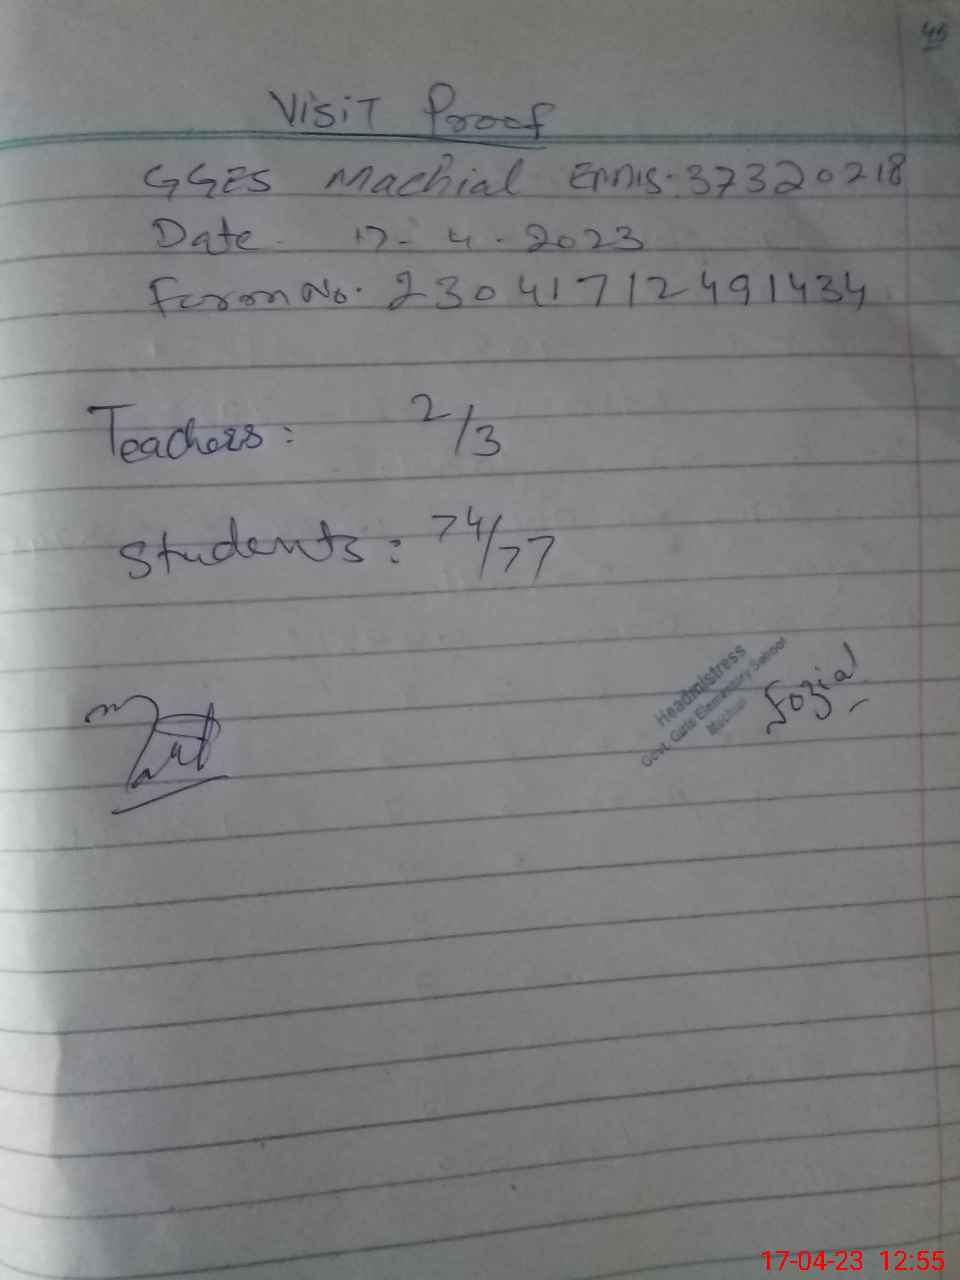 45
Visit Proof
GGES Machial EMIS: 37320218
Date. 17-4-2023
Form No. 23041712491434
Teachers: 2/3
Students: 74/77
Headmistress
Govt. Girls Elementary School
Machial
Fozia
17-04-23 12:55